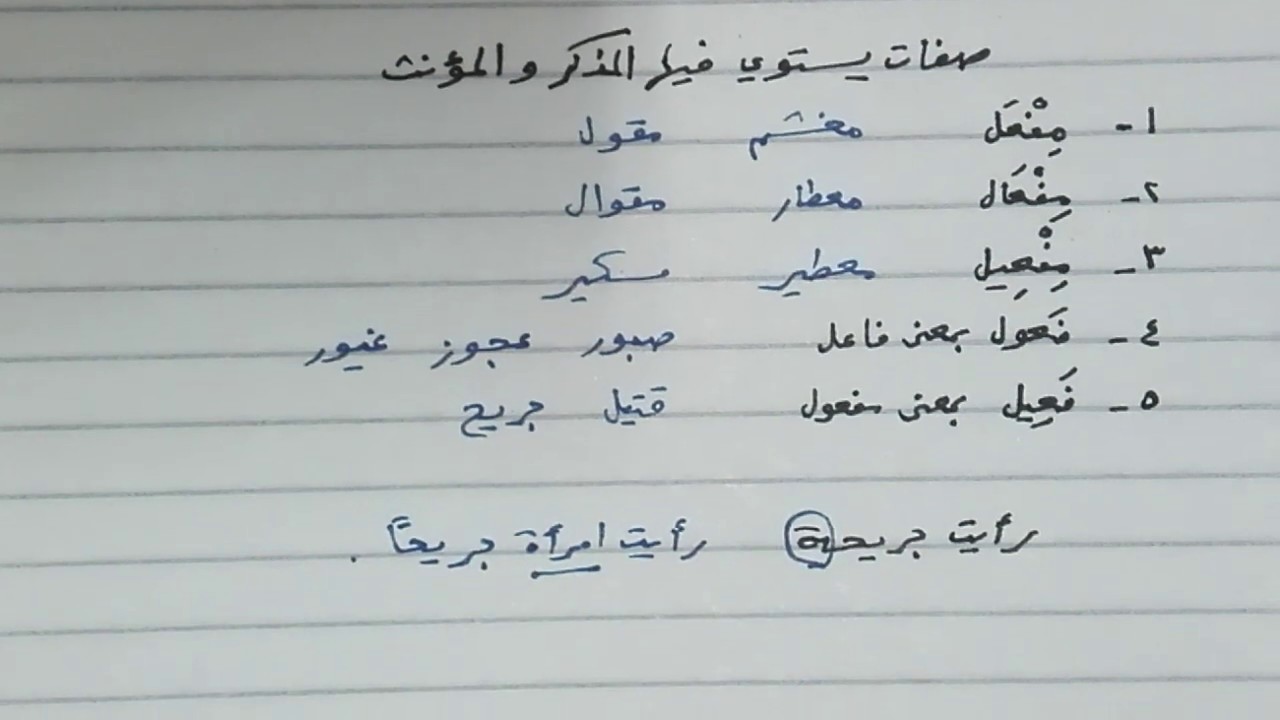 صفات يستوي فيها المذكر والمؤنث
١- مِفْعَل مغشم مقول
٢- مِفْعَال معطار مقوال
٣- مِفْعِيل معطير مسكير
٤- فَعول بمعنى فاعل صبور عجوز غيور
٥- فَعِيل بمعنى مفعول قتيل جريح
رأيت جريحة رأيت امرأة جريحًا .